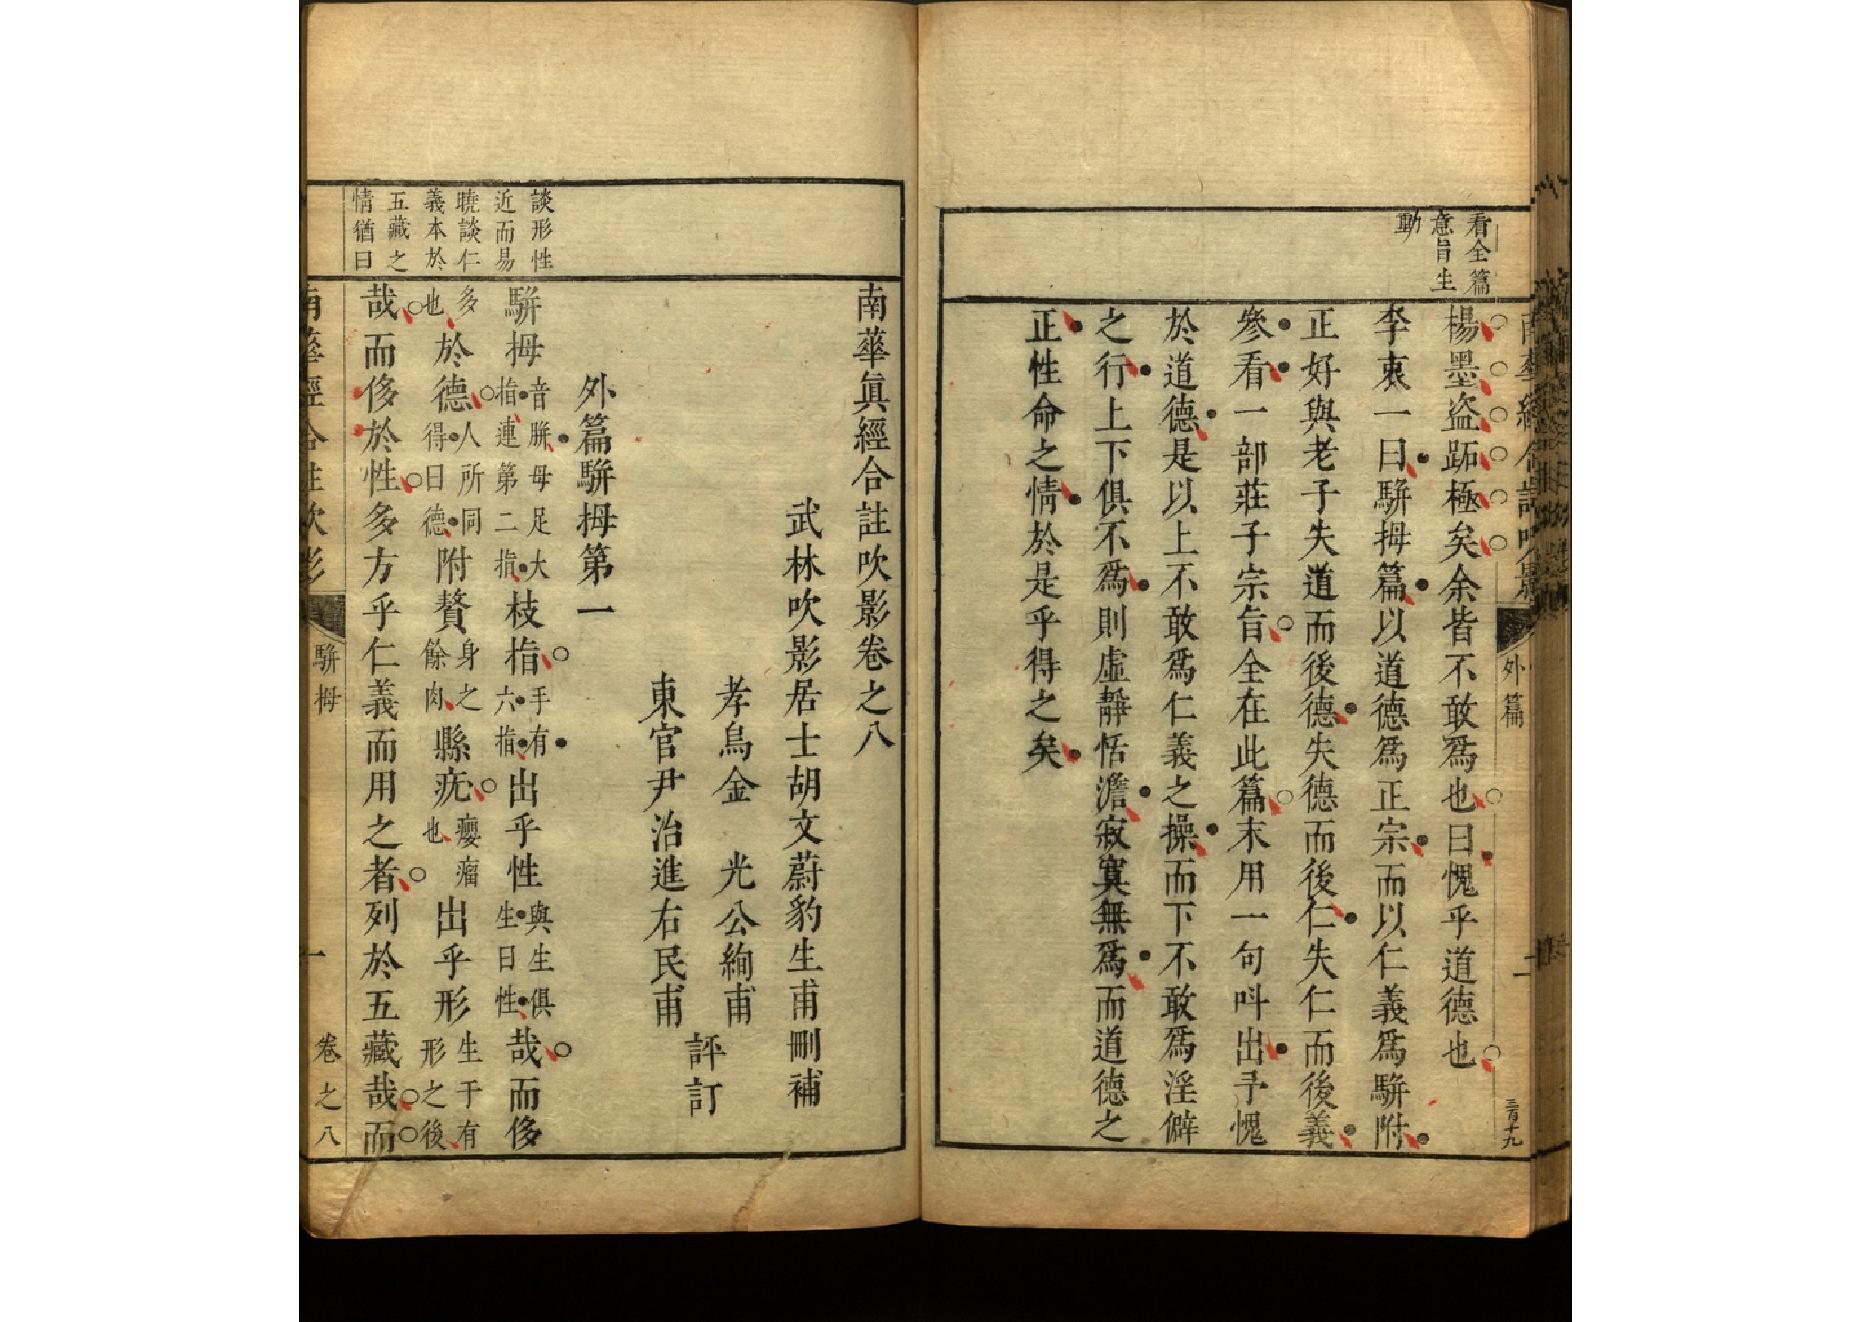 看全篇
意旨生
動
楊墨盗跖極矣余皆不敢爲也曰愧乎道德也
李衷一曰駢拇篇以道德爲正宗而以仁義爲駢附
正好與老子失道而後德失德而後仁失仁而後義
參看一部莊子宗旨全在此篇末用一句呌出予愧
於道德是以上不敢爲仁義之操而下不敢爲淫僻
之行上下俱不爲則虛靜恬澹寂寞無爲而道德之
正性命之情於是乎得之矣
外篇
三百十九
南華眞經合註吹影卷之八
武林吹影居士胡文蔚豹生甫刪補
孝烏金 光公絢甫
東官尹治進右民甫
評訂
外篇駢拇第一
談形性
近而易
曉談仁
義本於
五藏之
情猶曰
駢拇音胼母足大指連第二指枝指手有六指出乎性與生俱生曰性哉而侈
多也於德人所同得曰德附贅身之餘肉縣疣癭瘤也出乎形生于有形之後
哉而侈於性多方乎仁義而用之者列於五藏哉而
南華經合註吹影
駢拇
一
卷之八